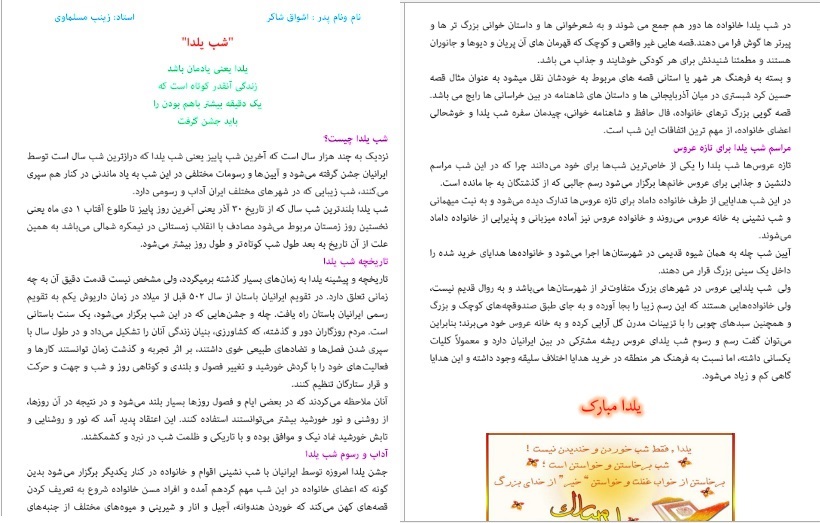 نام ونام پدر : اشواق شاکر
استاد: زینب مسلماوی
"شب یلدا"
یلدا یعنی یادمان باشد
زندگی آنقدر کوتاه است که
یک دقیقه بیشتر باهم بودن را
باید جشن گرفت
شب یلدا چیست؟
نزدیک به چند هزار سال است که آخرین شب پاییز یعنی شب یلدا که درازترین شب سال است توسط
ایرانیان جشن گرفته می‌شود و آیین‌ها و رسومات مختلفی در این شب به یاد ماندنی در کنار هم سپری
می‌کنند، شب زیبایی که در شهرهای مختلف ایران آداب و رسومی دارد.
شب یلدا بلندترین شب سال که از تاریخ ۳۰ آذر یعنی آخرین روز پاییز تا طلوع آفتاب ۱ دی ماه یعنی
نخستین روز زمستان مربوط می‌شود مصادف با انقلاب زمستانی در نیمکره شمالی می‌باشد به همین
علت از آن تاریخ به بعد طول شب کوتاه‌تر و طول روز بیشتر می‌شود.
تاریخچه شب یلدا
تاریخچه و پیشینه یلدا به زمان‌های بسیار گذشته برمیگردد، ولی مشخص نیست قدمت دقیق آن به چه
زمانی تعلق دارد. در تقویم ایرانیان باستان از سال ۵۰۲ قبل از میلاد در زمان داریوش یکم به تقویم
رسمی ایرانیان باستان راه یافت. چله و جشن‌هایی که در این شب برگزار می‌شود، یک سنت باستانی
است. مردم روزگاران دور و گذشته، که کشاورزی، بنیان زندگی آنان را تشکیل می‌داد و در طول سال با
سپری شدن فصل‌ها و تضادهای طبیعی خوی داشتند، بر اثر تجربه و گذشت زمان توانستند کارها و
فعالیت‌های خود را با گردش خورشید و تغییر فصول و بلندی و کوتاهی روز و شب و جهت و حرکت
و قرار ستارگان تنظیم کنند.
آنان ملاحظه می‌کردند که در بعضی ایام و فصول روزها بسیار بلند می‌شود و در نتیجه در آن روزها،
از روشنی و نور خورشید بیشتر می‌توانستند استفاده کنند. این اعتقاد پدید آمد که نور و روشنایی و
تابش خورشید نماد نیک و موافق بوده و با تاریکی و ظلمت شب در نبرد و کشمکشند.
آداب و رسوم شب یلدا
جشن یلدا امروزه توسط ایرانیان با شب نشینی اقوام و خانواده در کنار یکدیگر برگزار می‌شود بدین
گونه که اعضای خانواده در این شب مهم گردهم آمده و افراد مسن خانواده شروع به تعریف کردن
قصه‌های کهن می‌کند که خوردن هندوانه، آجیل و انار و شیرینی و میوه‌های مختلف از جنبه‌های
در شب یلدا خانواده ها دور هم جمع می شوند و به شعرخوانی ها و داستان خوانی بزرگ تر ها و
پیرتر ها گوش فرا می دهند.قصه هایی غیر واقعی و کوچک که قهرمان های آن پریان و دیوها و جانوران
هستند و مطمئنا شنیدنش برای هر کودکی خوشایند و جذاب می باشد.
و بسته به فرهنگ هر شهر یا استانی قصه های مربوط به خودشان نقل میشود به عنوان مثال قصه
حسین کرد شبستری در میان آذربایجانی ها و داستان های شاهنامه در بین خراسانی ها رایج می باشد.
قصه گویی بزرگ ترهای خانواده، فال حافظ و شاهنامه خوانی، چیدمان سفره شب یلدا و خوشحالی
اعضای خانواده، از مهم ترین اتفاقات این شب است.
مراسم شب یلدا برای تازه عروس
تازه عروس‌ها شب یلدا را یکی از خاص‌ترین شب‌ها برای خود می‌دانند چرا که در این شب مراسم
دلنشین و جذابی برای عروس خانم‌ها برگزار می‌شود رسم جالبی که از گذشتگان به جا مانده است.
در این شب هدایایی از طرف خانواده داماد برای تازه عروس‌ها تدارک دیده می‌شود و به نیت میهمانی
و شب نشینی به خانه عروس می‌روند و خانواده عروس نیز آماده میزبانی و پذیرایی از خانواده داماد
می‌شوند.
آیین شب چله به همان شیوه قدیمی در شهرستان‌ها اجرا می‌شود و خانواده‌ها هدایای خرید شده را
داخل یک سینی بزرگ قرار می دهند.
ولی شب یلدایی عروس در شهرهای بزرگ متفاوت‌تر از شهرستان‌ها می‌باشد و به روال قدیم نیست،
ولی خانواده‌هایی هستند که این رسم زیبا را بجا آورده و به جای طبق صندوقچه‌های کوچک و بزرگ
و همچنین سبدهای چوبی را با تزیینات مدرن گل آرایی کرده و به خانه عروس خود می‌برند؛ بنابراین
می‌توان گفت رسم و رسوم شب یلدای عروس ریشه مشترکی در بین ایرانیان دارد و معمولاً کلیات
یکسانی داشته، اما نسبت به فرهنگ هر منطقه در خرید هدایا اختلاف سلیقه وجود داشته و این هدایا
گاهی کم و زیاد می‌شود.
یلدا مبارک
یلدا , فقط شب خوردن و خندیدن نیست !
شب برخاستن و خواستن است !
برخاستن از خواب غفلت و خواستن "خیر" از خدای بزرگ